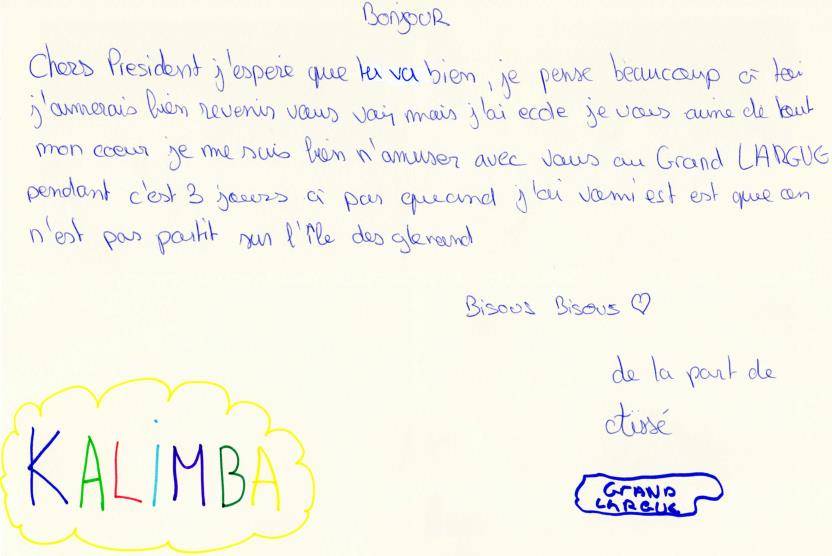 Bonjour
Chers President j'espère que tu va bien, je pense beaucoup à toi
j'aimerais bien revenir vous voir mais j'ai ecole je vous aime de tout
mon coeur je me suis bien n'amuser avec vous au Grand LARGUE
pendant c'est 3 jours a par quand j'ai vomi est est que on
n'est pas partit sur l'île des glenand
Bisous Bisous ♡
de la part de
KALIMBA
GRAND
LARGUE